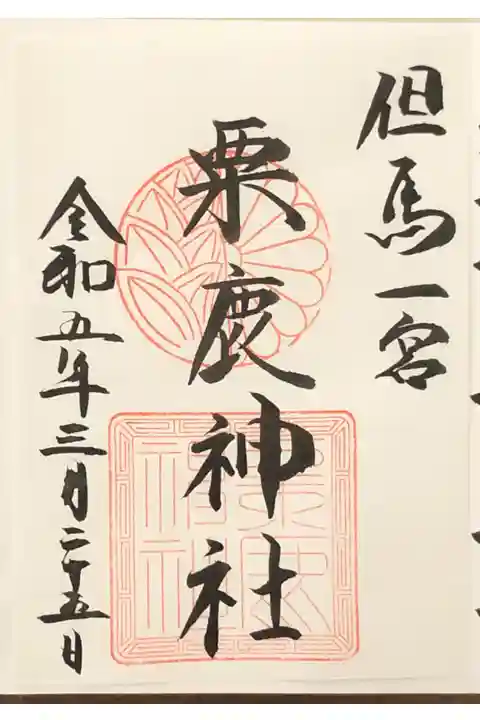 但馬一宮
粟鹿神社
令和五年三月二十五日
粟鹿神社